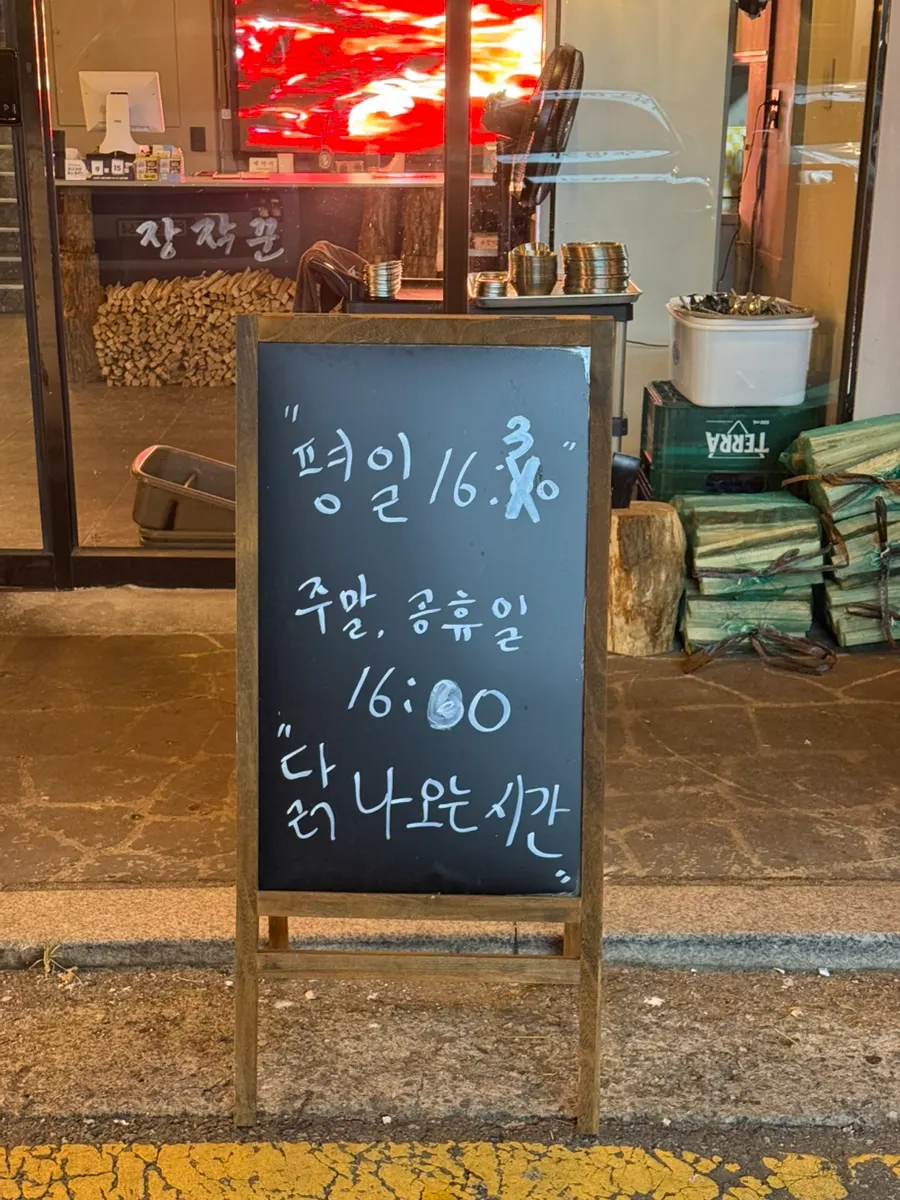 장작꾼
TERRA
"평일 16:30"
주말, 공휴일
16:00
"닭 나오는 시간"